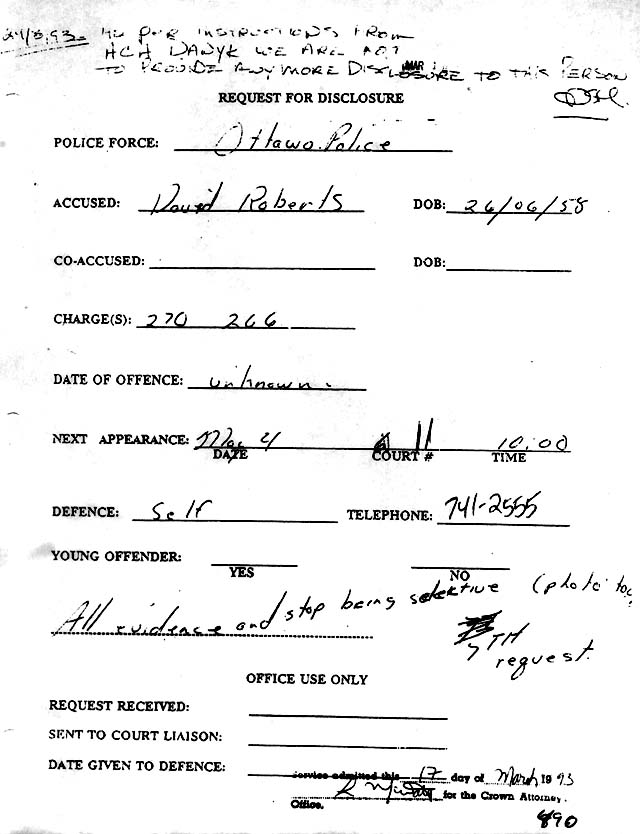 24/3/93- AS PER INSTRUCTIONS FROM
ACA DANYK WE ARE NOT
TO PROVIDE ANYMORE DISCLOSURE TO THIS PERSON
REQUEST FOR DISCLOSURE
POLICE FORCE: Ottawa Police
ACCUSED: David Roberts DOB: 26/06/58
CO-ACCUSED: DOB:
CHARGE(S): 270 266
DATE OF OFFENCE: unknown.
NEXT APPEARANCE: Mar 4 11 10:00
DATE COURT # TIME
DEFENCE: Self TELEPHONE: 741-2555
YOUNG OFFENDER:
YES NO
All evidence and stop being selective (photo too
7TH
request.
OFFICE USE ONLY
REQUEST RECEIVED:
SENT TO COURT LIAISON:
DATE GIVEN TO DEFENCE:
Service admitted this 17 day of March 1993
for the Crown Attorney.
Office.
890